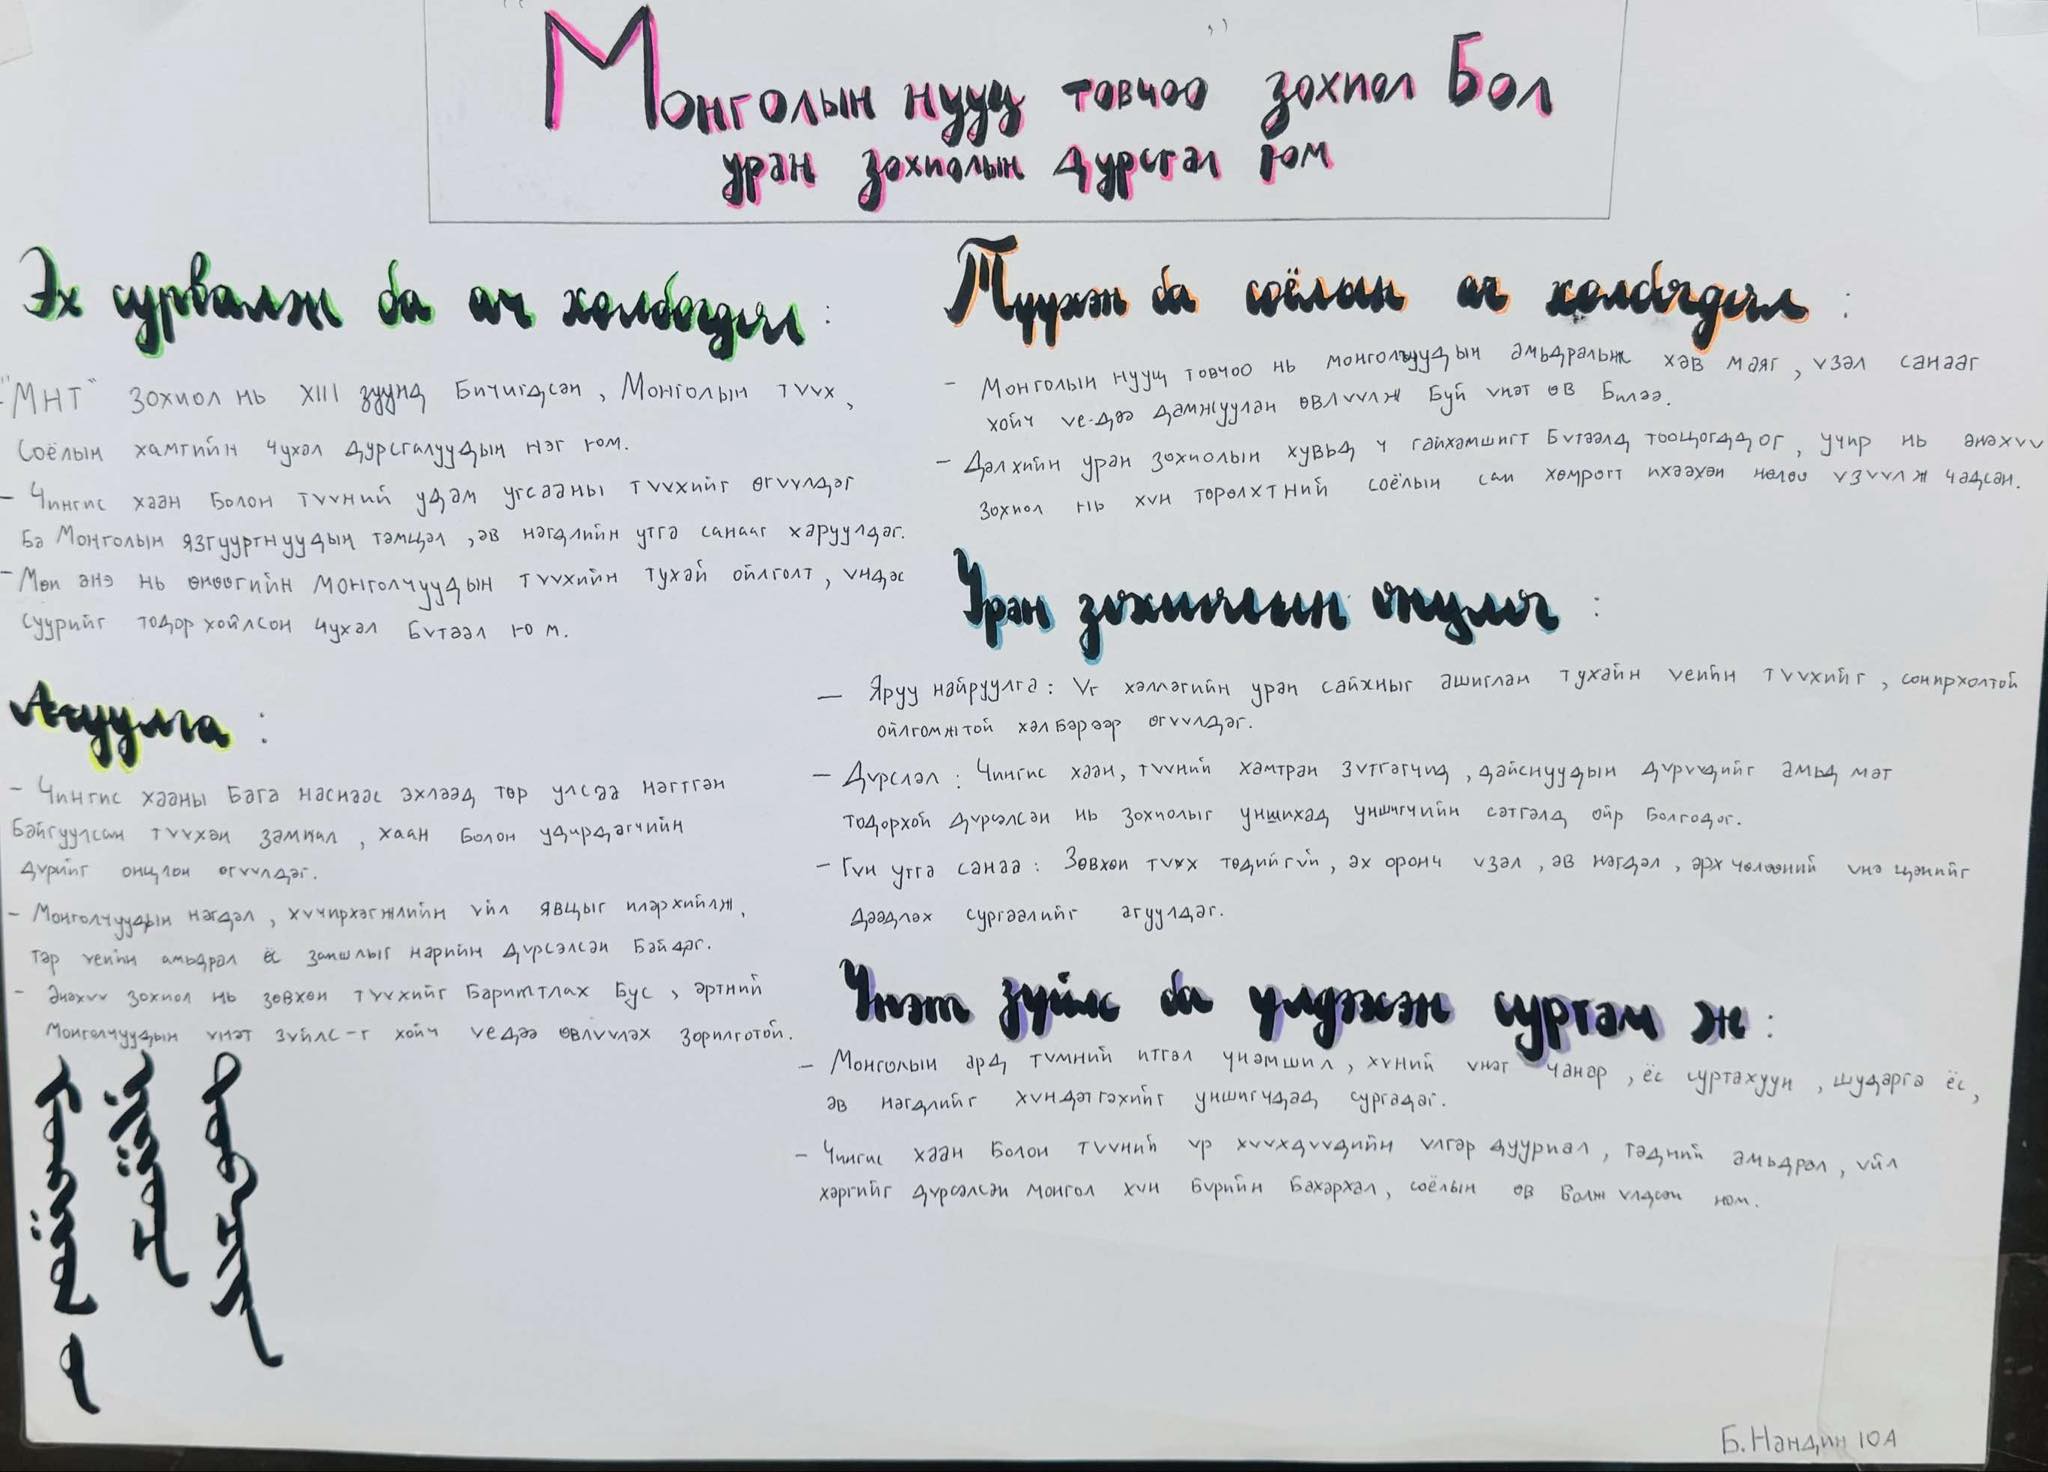 "Монголын нууц товчоо" зохиол Бол
уран зохиолын дурсгал юм
Эх сурвалж ба ач холбогдол:
- "МНТ" зохиол нь XIII зуунд Бичигдсэн, Монголын түүх,
Соёлын хамгийн чухал дурсгалуудын нэг юм.
- Чингис хаан Болон түүний удам угсааны түүхийг өгүүлдэг
Ба Монголын язгууртнуудын тэмцэл, эв нэгдлийн утга санааг харуулдаг.
- Мөн энэ нь өнөөгийн монголчуудын түүхийн тухай ойлголт, үндэс
суурийг тодорхойлсон чухал Бүтээл юм.
Агуулга:
- Чингис хааны Бага наснаас эхлээд төр улсаа нэгтгэн
Байгуулсан түүхэн замнал, хаан Болон удирдагчийн
дүрийг онцлон өгүүлдэг.
- Монголчуудын нэгдэл, хүчирхэгжлийн үйл явцыг илэрхийлж,
тэр үеийн амьдрал ёс заншлыг нарийн дүрсэлсэн Байдаг.
- Энэхүү зохиол нь зөвхөн түүхийг Баримтлах Бус, эртний
Монголчуудын үнэт зүйлс-г хойч үедээ өвлүүлэх зорилготой.
Түүхэн ба соёлын ач холбогдол:
- Монголын нууц товчоо нь монголчуудын амьдралын хэв маяг, үзэл санааг
хойч үе-дээ дамжуулан өвлүүлж Буй үнэт өв Билээ.
- Дэлхийн уран зохиолын хувьд ч гайхамшигт Бүтээлд тооцогддог, учир нь энэхүү
зохиол нь хүн төрөлхтний соёлын сан хөмрөгт ихээхэн нөлөө үзүүлж чадсан.
Уран зохиолын онцлог:
- Яруу найруулга: Үг хэллэгийн уран сайхныг ашиглан тухайн үеийн түүхийг, сонирхолтой
ойлгомжтой хэлбэрээр өгүүлдэг.
- Дүрслэл: Чингис хаан, түүний хамтран зүтгэгчид, дайснуудын дүрүүдийг амьд мэт
тодорхой дүрсэлсэн нь зохиолыг уншихад уншигчийн сэтгэлд ойр Болгодог.
- Гүн утга санаа: Зөвхөн түүх төдийгүй, эх оронч үзэл, эв нэгдэл, эрх чөлөөний үнэ цэнийг
дээдлэх сургаалийг агуулдаг.
Үнэт зүйлс ба үлдээсэн сургамж:
- Монголын ард түмний итгэл үнэмшил, хүний үнэт чанар, ёс суртахуун, шударга ёс,
эв нэгдлийг хүндэтгэхийг уншигчдад сургадаг.
- Чингис хаан Болон түүний үр хүүхдүүдийн үлгэр дууриал, тэдний амьдрал, үйл
хэргийг дүрсэлсэн монгол хүн Бүрийн Бахархал, соёлын өв Болж үлдсэн ном.
Б.Нандин 10А